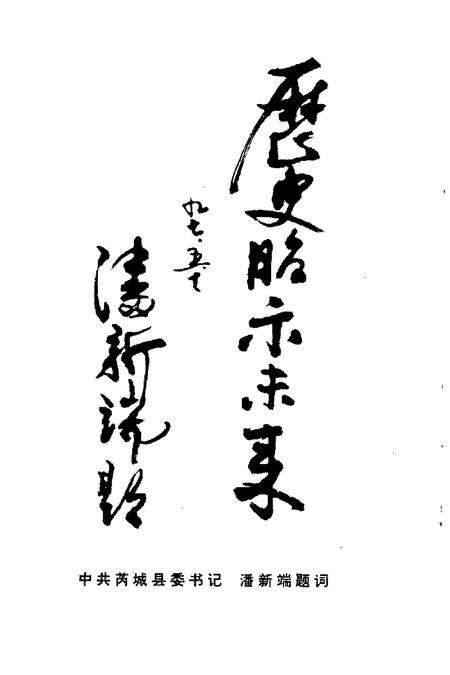 歷史昭示未来
九七·五·七
潘新端题
中共芮城县委书记 潘新端题词